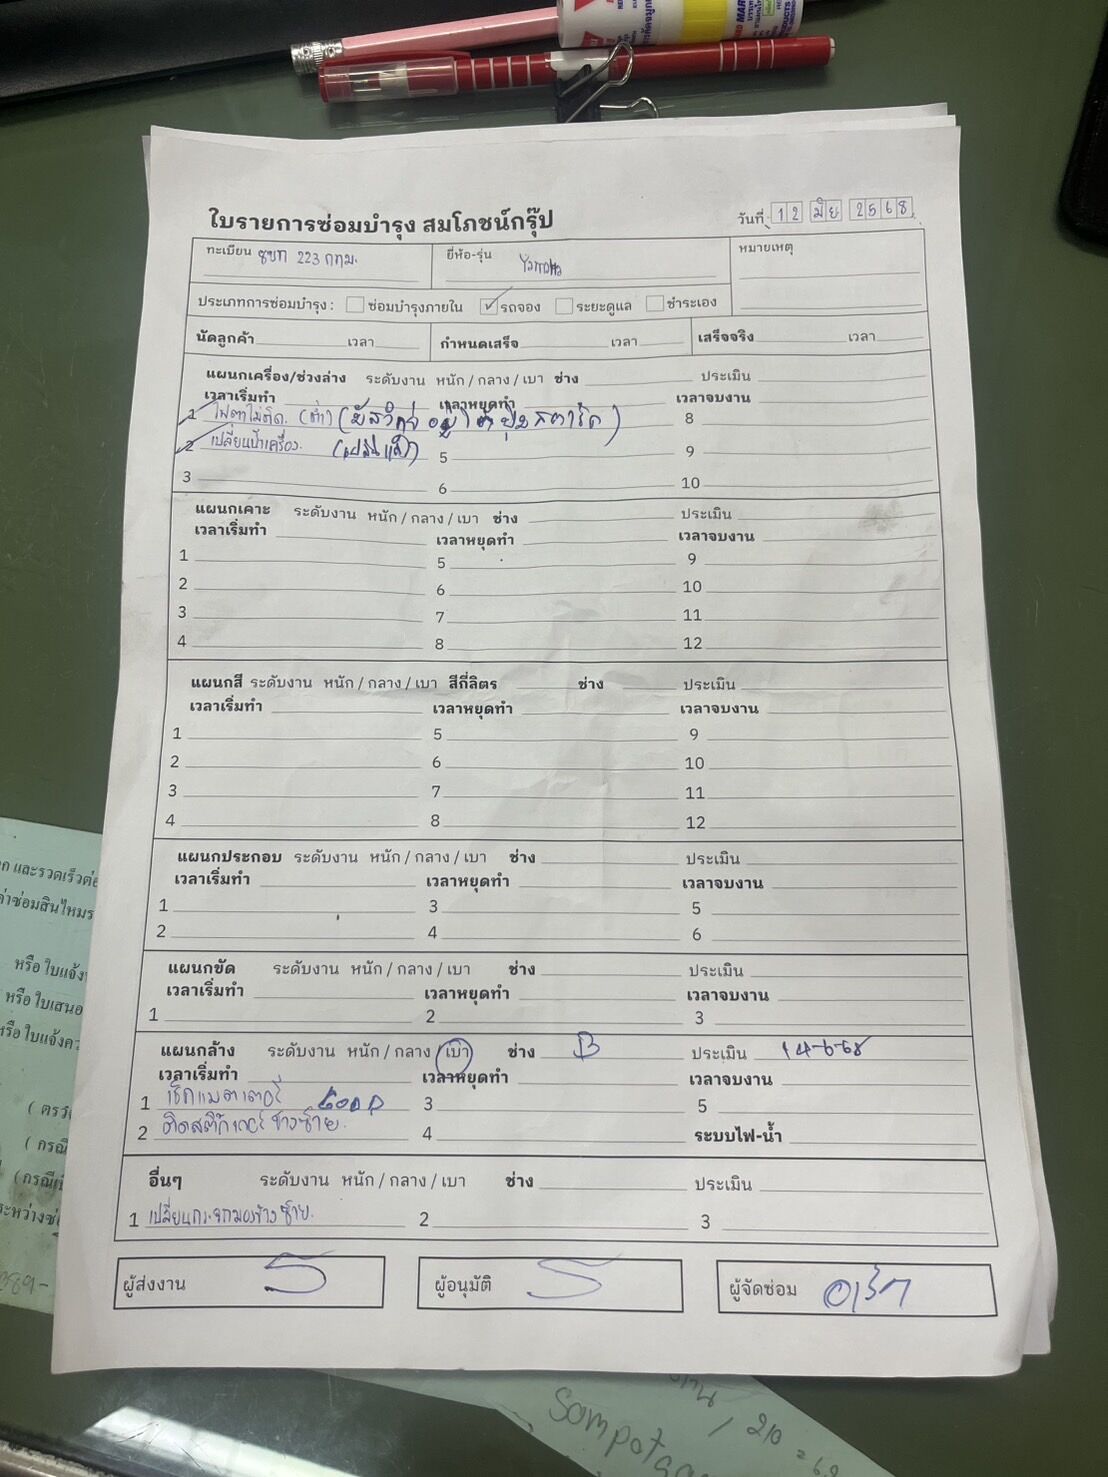 ใบรายการซ่อมบำรุง สมโภชน์กรุ๊ป
วันที่ 12 มิย 2568
ทะเบียน 8ขก 223 กทม. ยี่ห้อ-รุ่น Yamaha หมายเหตุ
ประเภทการซ่อมบำรุง : ซ่อมบำรุงภายใน ✓ รถจอง ระยะดูแล ชำระเอง
นัดลูกค้า เวลา กำหนดเสร็จ เวลา เสร็จจริง เวลา
แผนกเครื่อง/ช่วงล่าง ระดับงาน หนัก / กลาง / เบา ช่าง ประเมิน
เวลาเริ่มทำ เวลาหยุดทำ เวลาจบงาน
1 ไฟตาไม่ติด. 8
2 เปลี่ยนน้ำเครื่อง. 5 9
3 6 10
แผนกเคาะ ระดับงาน หนัก / กลาง / เบา ช่าง ประเมิน
เวลาเริ่มทำ เวลาหยุดทำ เวลาจบงาน
1 5 9
2 6 10
3 7 11
4 8 12
แผนกสี ระดับงาน หนัก / กลาง / เบา สีกี่ลิตร ช่าง ประเมิน
เวลาเริ่มทำ เวลาหยุดทำ เวลาจบงาน
1 5 9
2 6 10
3 7 11
4 8 12
แผนกประกอบ ระดับงาน หนัก / กลาง / เบา ช่าง ประเมิน
เวลาเริ่มทำ เวลาหยุดทำ เวลาจบงาน
1 3 5
2 4 6
แผนกขัด ระดับงาน หนัก / กลาง / เบา ช่าง ประเมิน
เวลาเริ่มทำ เวลาหยุดทำ เวลาจบงาน
1 2 3
แผนกล้าง ระดับงาน หนัก / กลาง / เบา ช่าง B ประเมิน 14-6-68
เวลาเริ่มทำ เวลาหยุดทำ เวลาจบงาน
1 เช็คแบตเตอรี่ GOOD 3 5
2 ติดสติ๊กเกอร์ข้างซ้าย. 4 ระบบไฟ-น้ำ
อื่นๆ ระดับงาน หนัก / กลาง / เบา ช่าง ประเมิน
1 เปลี่ยนกระจกมองข้างซ้าย. 2 3
ผู้ส่งงาน ผู้อนุมัติ ผู้จัดซ่อม
และรวดเร็วต่อ
ค่าซ่อมสินไหม
หรือ ใบแจ้ง
หรือ ใบเสนอ
หรือ ใบแจ้งคว
( กรณี
(กรณี
ระหว่าง
389-
210